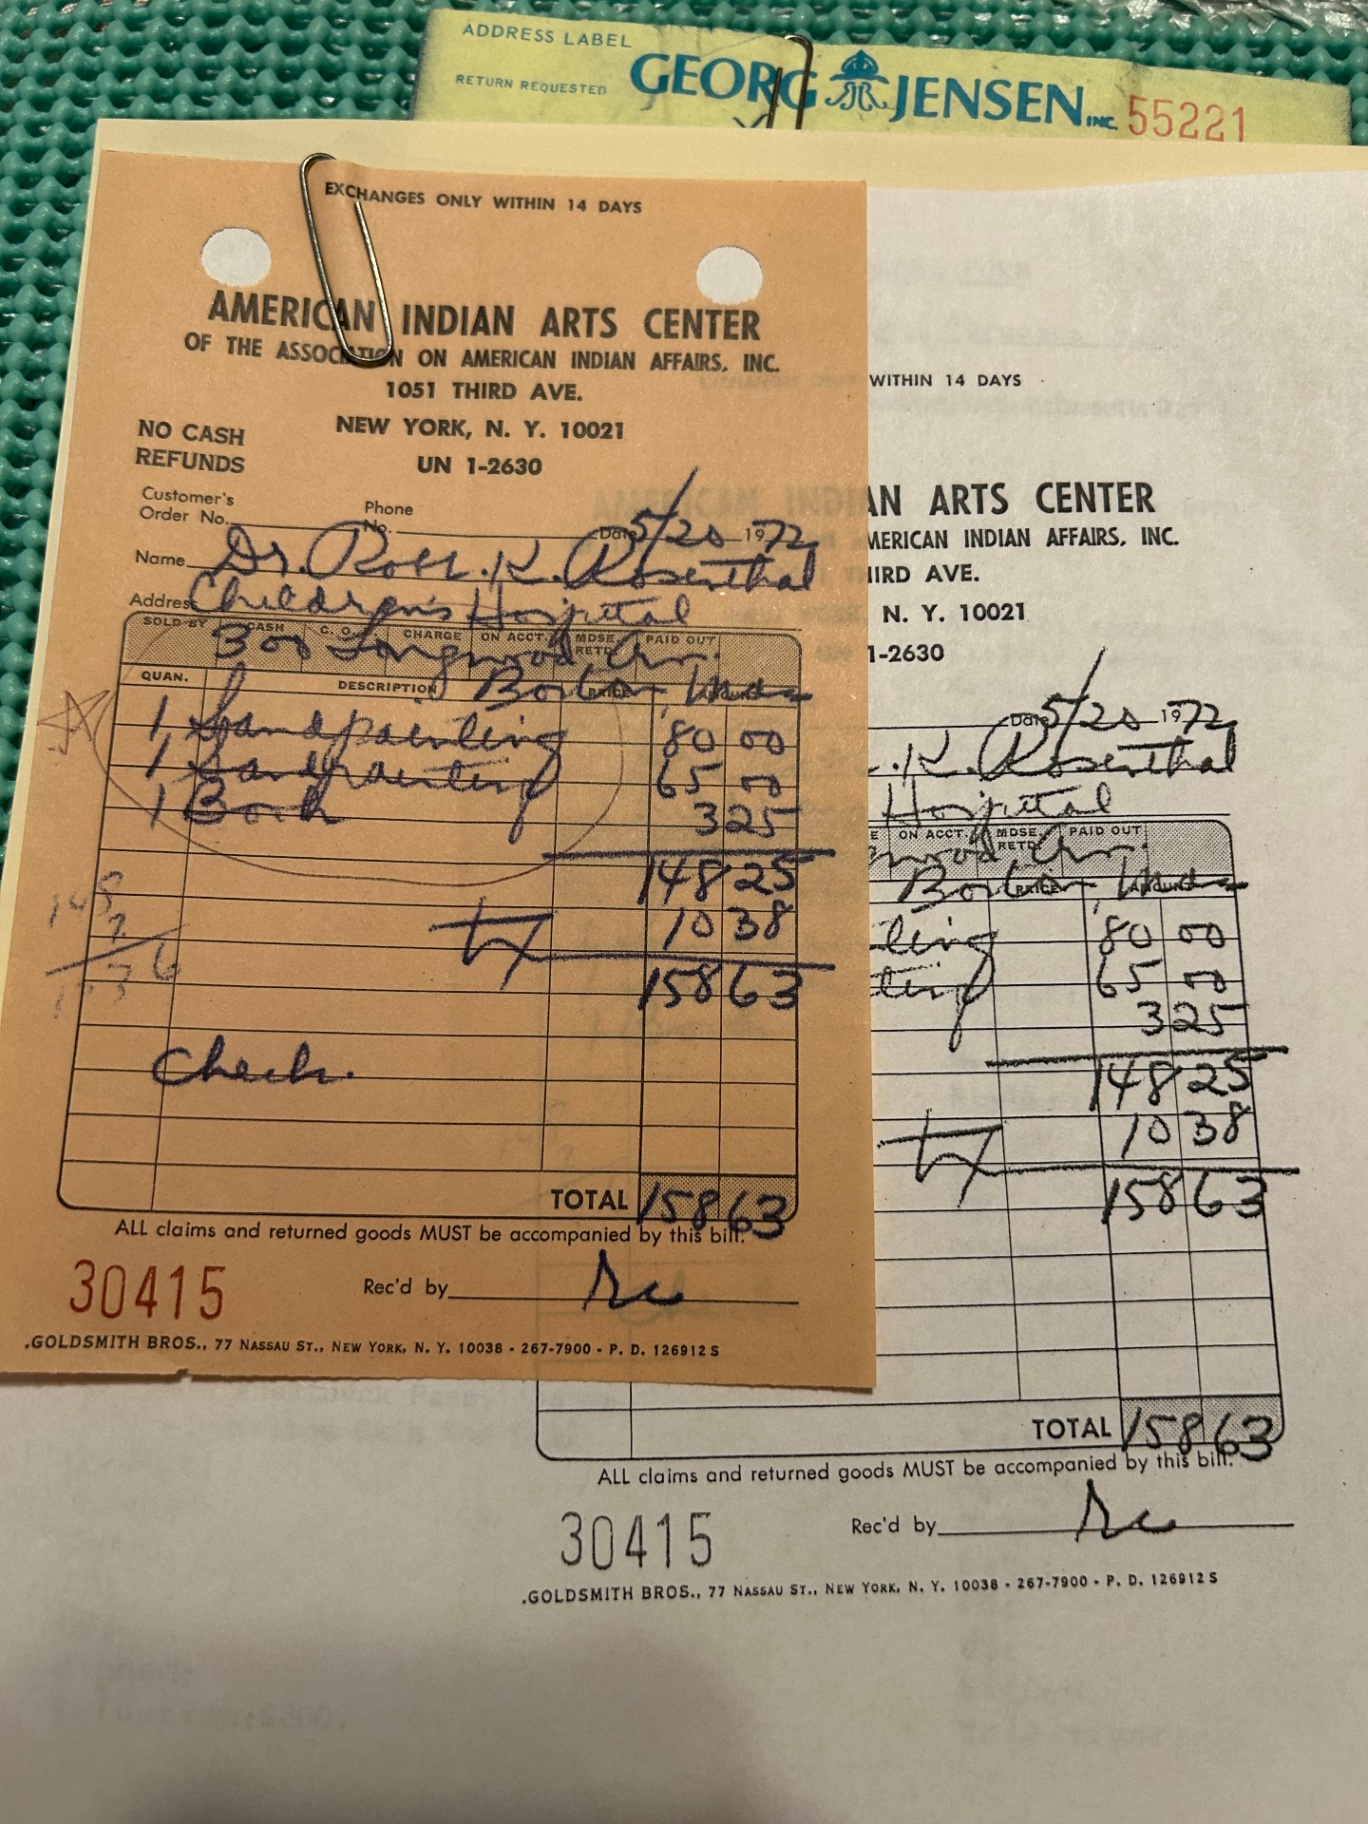 ADDRESS LABEL
RETURN REQUESTED
GEORG JENSEN INC. 55221
EXCHANGES ONLY WITHIN 14 DAYS
AMERICAN INDIAN ARTS CENTER
OF THE ASSOCIATION ON AMERICAN INDIAN AFFAIRS, INC.
1051 THIRD AVE.
NEW YORK, N. Y. 10021
NO CASH
REFUNDS
UN 1-2630
Customer's
Order No.
Phone
No.
Date 5/20 1972
Name Dr. Robt. K. Rosenthal
Address Children's Hospital
SOLD BY CASH C. O. CHARGE ON ACCT. MDSE. RETD. PAID OUT
300 Longwood Ave.
QUAN. DESCRIPTION PRICE AMOUNT
Boston, Mass
1 Sandpainting 80 00
1 Sandpainting 65 00
1 Book 3 25
148 25
tax 10 38
158 63
148
7
Check.
TOTAL 158 63
ALL claims and returned goods MUST be accompanied by this bill.
30415
Rec'd by
GOLDSMITH BROS., 77 NASSAU ST., NEW YORK, N. Y. 10038 - 267-7900 - P. D. 126912 S
WITHIN 14 DAYS
AN ARTS CENTER
MERICAN INDIAN AFFAIRS, INC.
HIRD AVE.
N. Y. 10021
1-2630
Date 5/20 1972
. K. Rosenthal
Hospital
E ON ACCT. MDSE. RETD. PAID OUT
gwood Ave.
PRICE AMOUNT
Boston, Mass
ting 80 00
ting 65 00
3 25
148 25
tax 10 38
158 63
TOTAL 158 63
ALL claims and returned goods MUST be accompanied by this bill.
30415
Rec'd by
GOLDSMITH BROS., 77 NASSAU ST., NEW YORK, N. Y. 10038 - 267-7900 - P. D. 126912 S